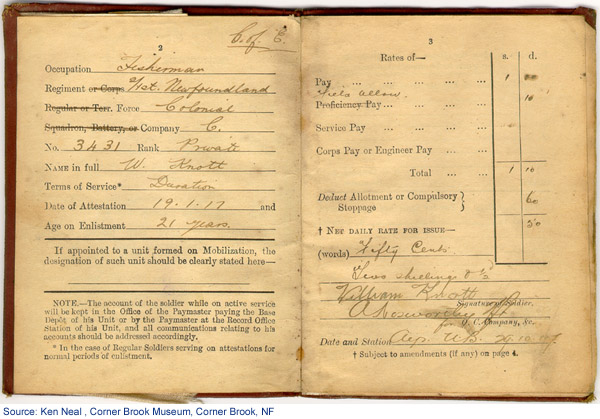 2
C. of E.
Occupation Fisherman
Regiment or Corps 1st. Newfoundland
Regular or Terr. Force Colonial
Squadron, Battery, or Company C.
No. 3431 Rank Private
NAME in full W. Knott
Terms of Service* Duration
Date of Attestation 19.1.17 and
Age on Enlistment 21 years.
If appointed to a unit formed on Mobilization, the
designation of such unit should be clearly stated here—
NOTE.—The account of the soldier while on active
service will be kept in the Office of the Paymaster paying the Base
Depôt of his Unit or by the Paymaster at the Record Office
Station of his Unit, and all communications relating to his
accounts should be addressed accordingly.
* In the case of Regular Soldiers serving on attestations for
normal periods of enlistment.
3
Rates of— s. d.
Pay ... ... ... ... 1
Field allow. 10
Proficiency Pay ... ... ...
Service Pay ... ... ...
Corps Pay or Engineer Pay ... ...
Total ... ... 1 10
Deduct Allotment or Compulsory
Stoppage } 60
50
† NET DAILY RATE FOR ISSUE—
(words) Fifty Cents
Two shillings
William Knott
Signature of Soldier.
for O. C. Company, &c.
Date and Station
† Subject to amendments (if any) on page 4.
Source: Ken Neal , Corner Brook Museum, Corner Brook, NF